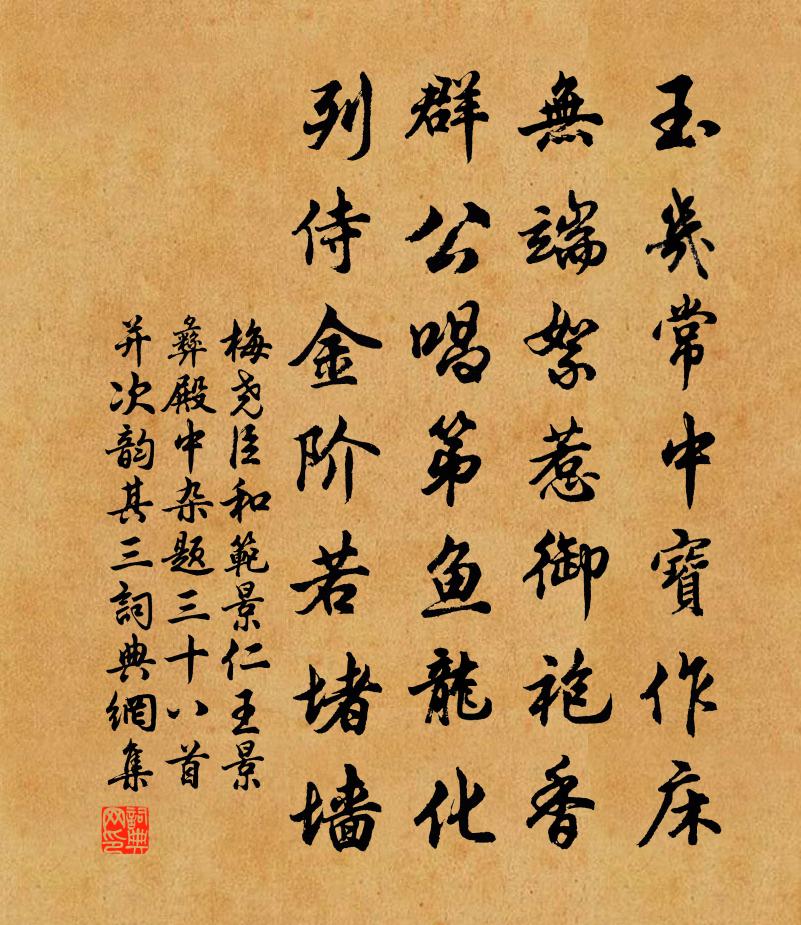 玉幾常中寶作床
無端絮惹御袍香
群公唱第鱼龍化
列侍金阶若堵墙
梅尧臣和範景仁王景
彝殿中杂题三十八首
并次韵其三詞典網集
詞典网印